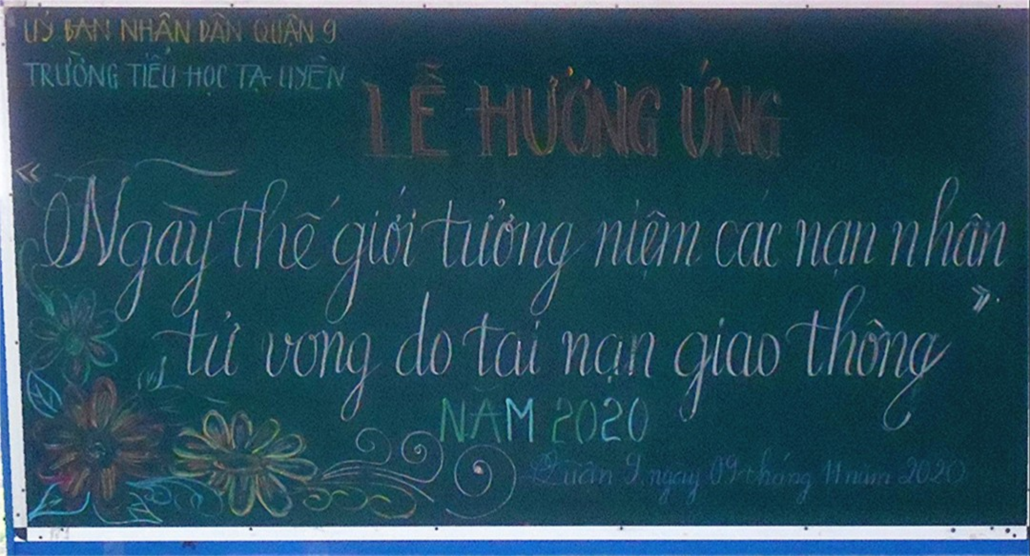 UỶ BAN NHÂN DÂN QUẬN 9
TRƯỜNG TIỂU HỌC TẠ UYÊN
LỄ HƯỞNG ỨNG
"Ngày thế giới tưởng niệm các nạn nhân
tử vong do tai nạn giao thông"
NĂM 2020
Quận 9, ngày 09 tháng 11 năm 2020